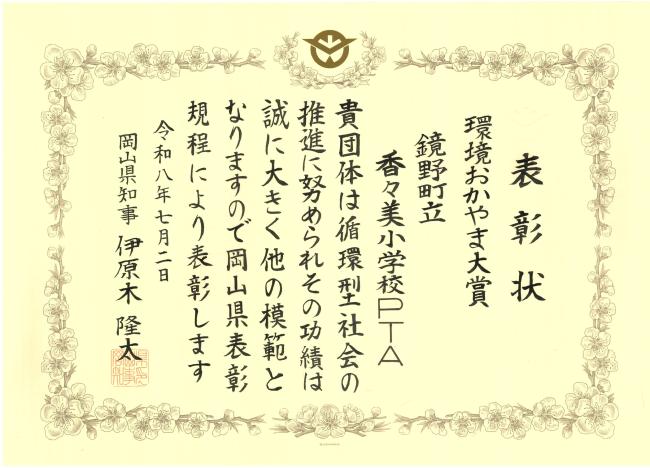 表彰状
環境おかやま大賞
鏡野町立
香々美小学校PTA
貴団体は循環型社会の
推進に努められその功績は
誠に大きく他の模範と
なりますので岡山県表彰
規程により表彰します
令和八年七月二日
岡山県知事 伊原木隆太